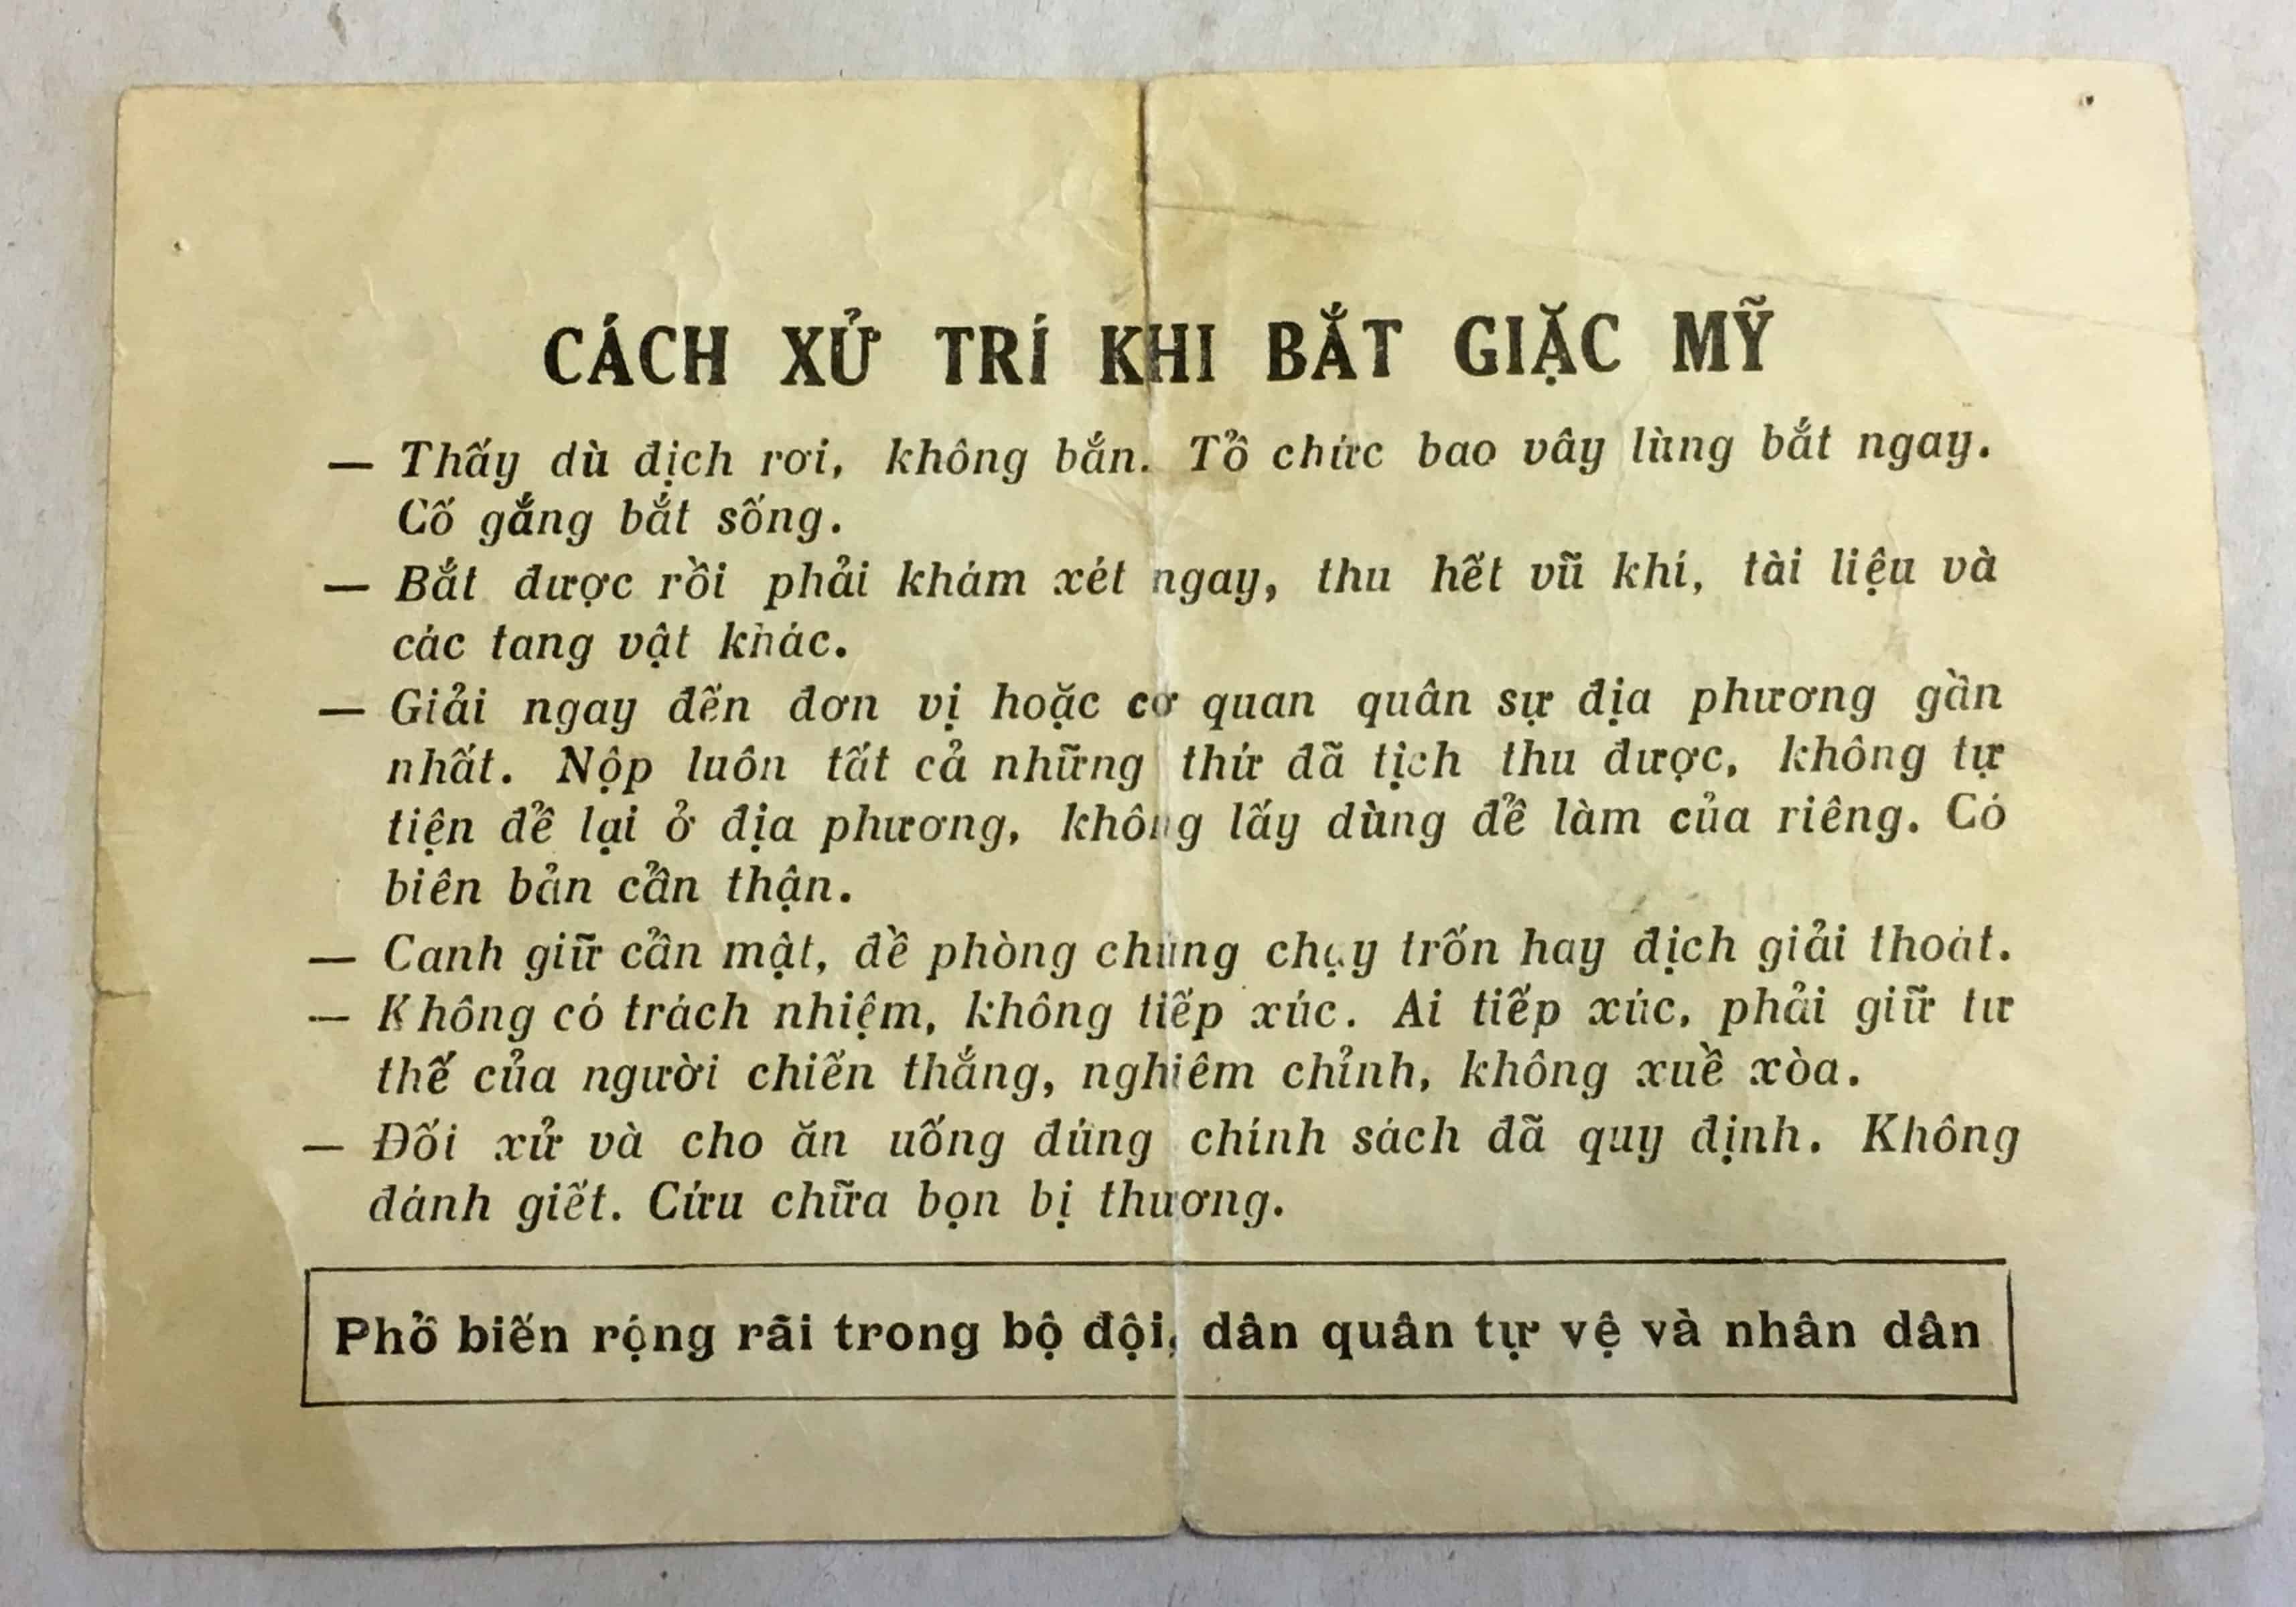 CÁCH XỬ TRÍ KHI BẮT GIẶC MỸ
— Thấy dù địch rơi, không bắn. Tổ chức bao vây lùng bắt ngay.
Cố gắng bắt sống.
— Bắt được rồi phải khám xét ngay, thu hết vũ khí, tài liệu và
các tang vật khác.
— Giải ngay đến đơn vị hoặc cơ quan quân sự địa phương gần
nhất. Nộp luôn tất cả những thứ đã tịch thu được, không tự
tiện để lại ở địa phương, không lấy dùng để làm của riêng. Có
biên bản cẩn thận.
— Canh giữ cẩn mật, đề phòng chúng chạy trốn hay địch giải thoát.
— Không có trách nhiệm, không tiếp xúc. Ai tiếp xúc, phải giữ tư
thế của người chiến thắng, nghiêm chỉnh, không xuề xòa.
— Đối xử và cho ăn uống đúng chính sách đã quy định. Không
đánh giết. Cứu chữa bọn bị thương.
Phổ biến rộng rãi trong bộ đội, dân quân tự vệ và nhân dân